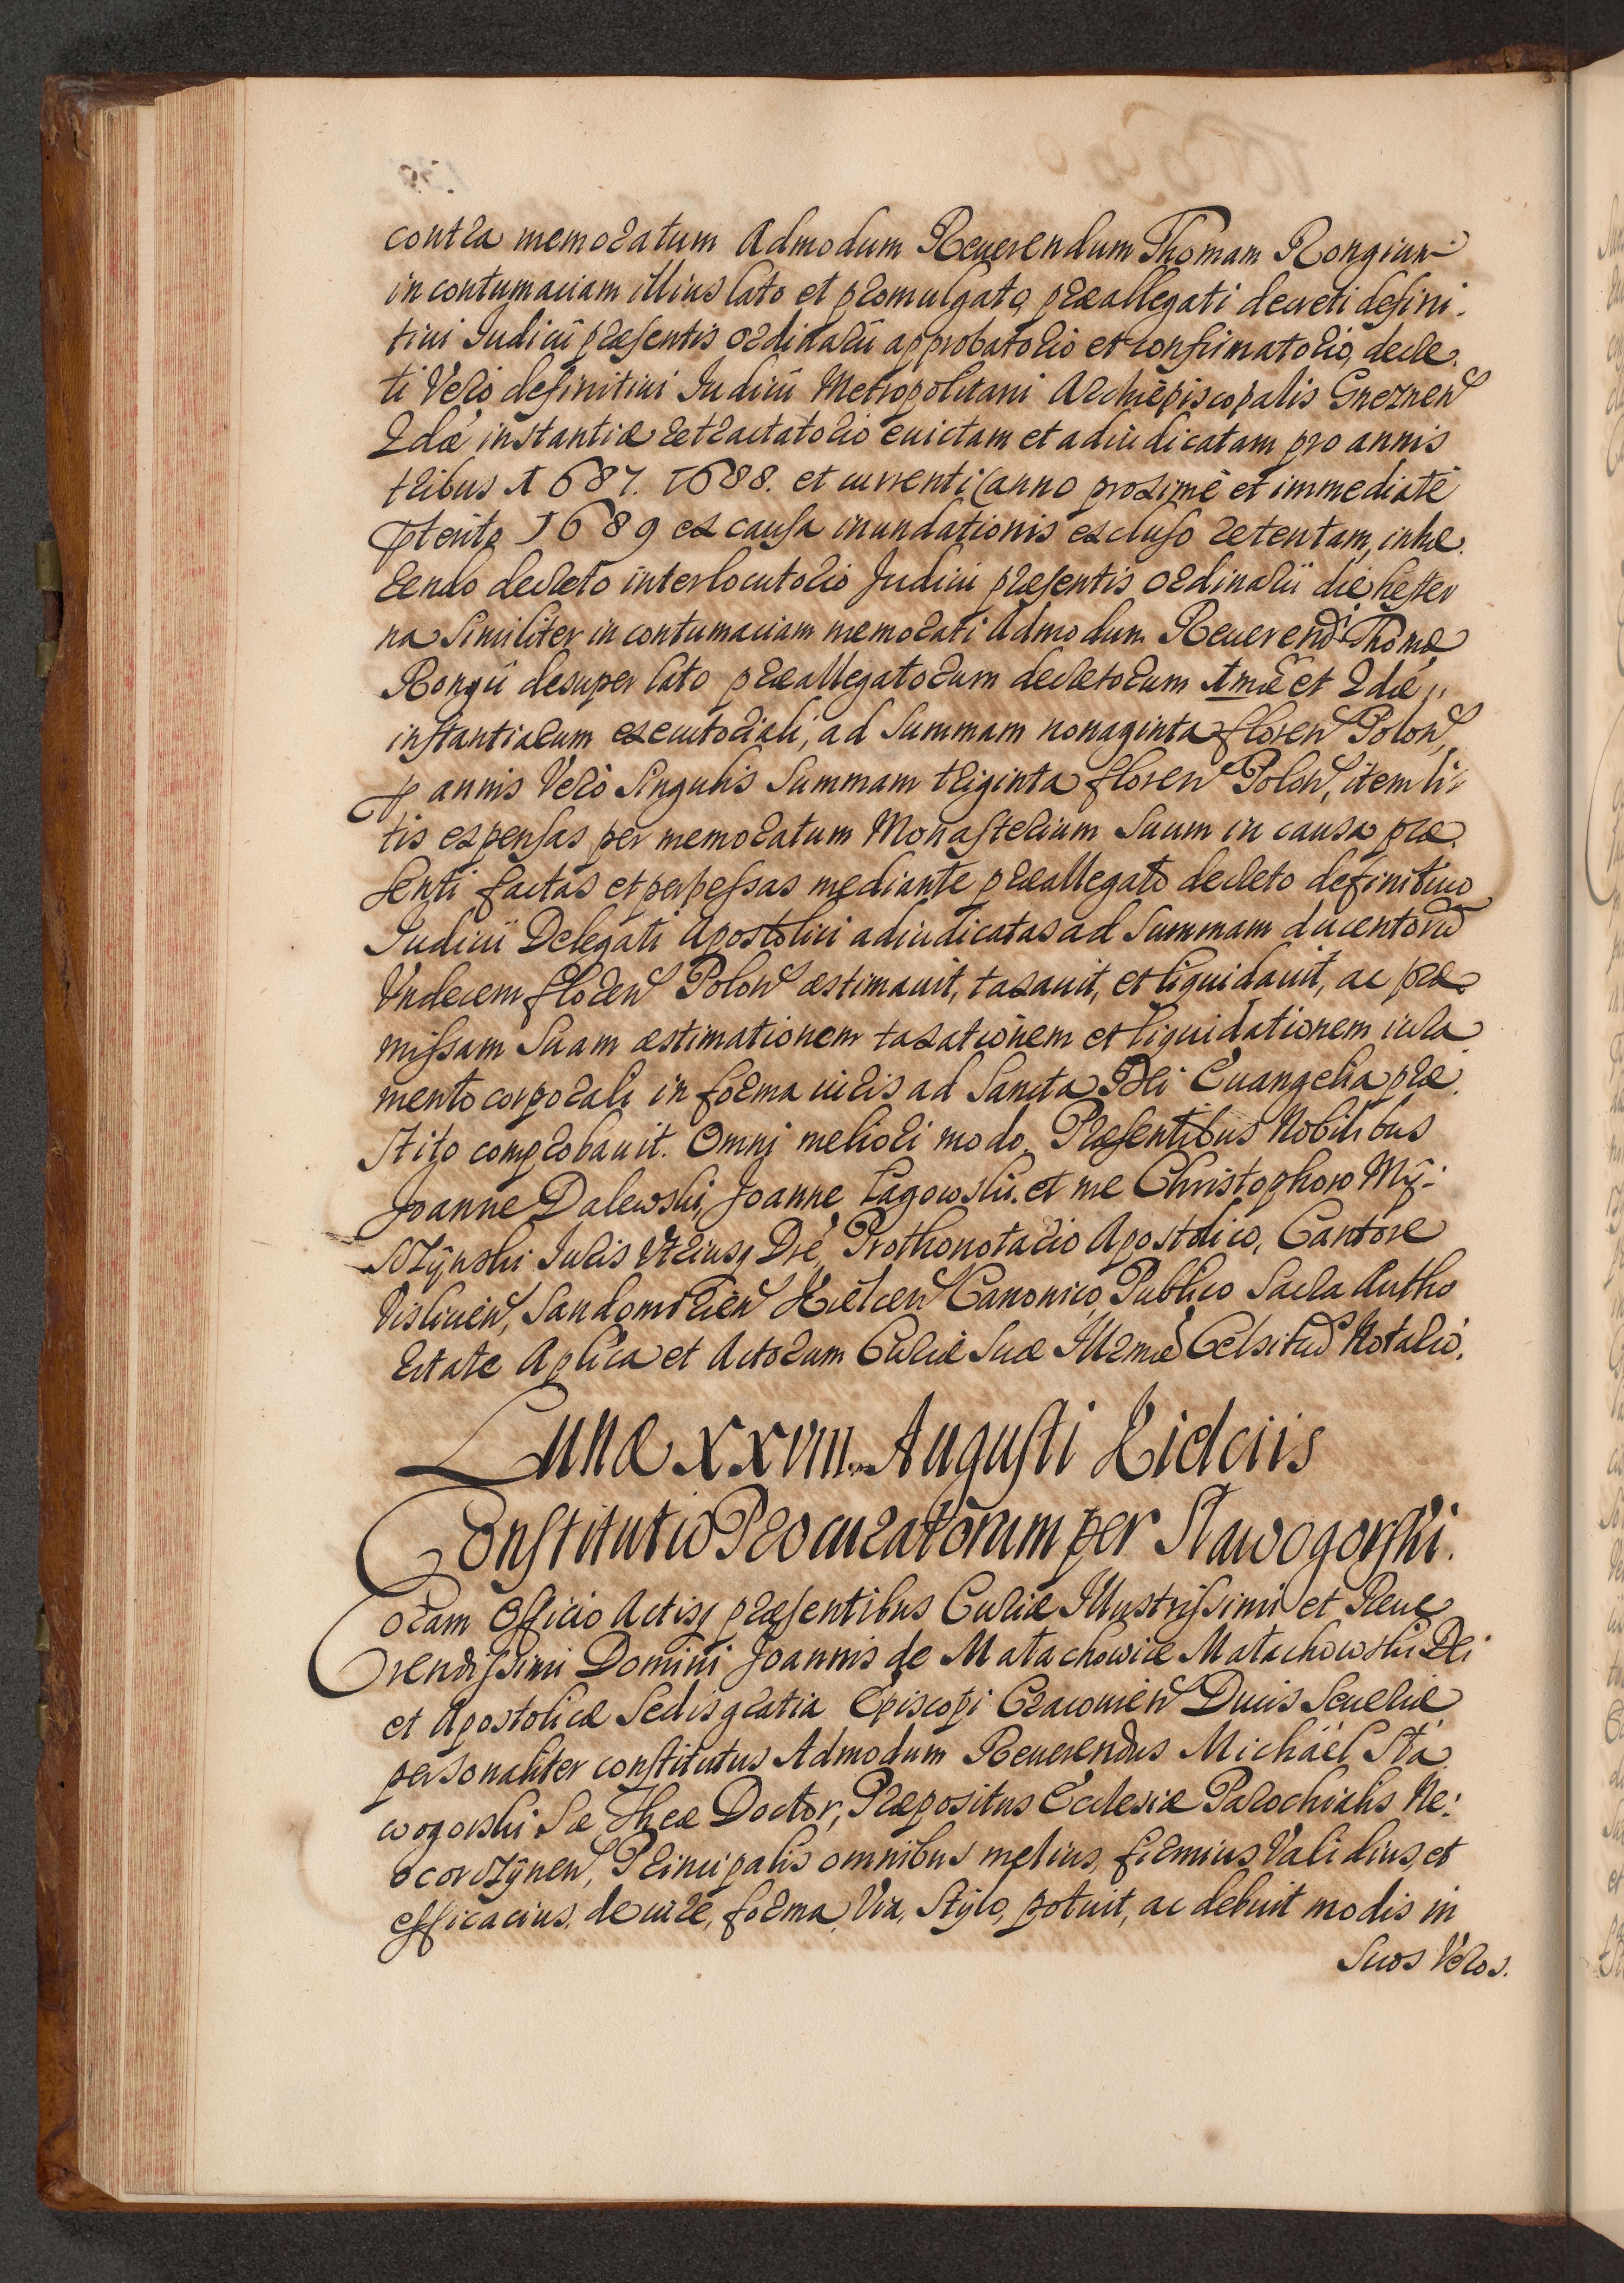 contra memoratum Admodum Reuerendum Thomam Rongium
in contumaciam illius lato et promulgato, præallegati decreti defini-
tiui Iudicii præsentis ordinarii approbatorio et confirmatorio, decre-
ti Verò definitiui Iudicii Metropolitani Archiepiscopalis Gneznen
2dæ instantiæ retractatorio euictam et adiudicatam pro annis
tribus 1687. 1688. et currenti (anno proximè et immediatè
ptterito 1689 ex causa inundationis excluso retentam, inhæ-
rendo decreto interlocutorio Judicii præsentis ordinarii die hester
na Similiter in contumaciam memorati Admodum Reuerendi Thomæ
Rongii desuper lato præallegatorum decretorum 1mæ et 2dæ
instantiarum executoriali, ad Summam nonaginta floren Polon,
p annis Verò Singulis Summam triginta floren Polon, item li-
tis expensas per memoratum Monasterium Suum in causa præ-
senti factas et perpessas mediante præallegato decreto definitiuo
Iudicii Delegati Apostolici adiudicatas ad Summam ducentorũ
Vndecem floren Polon æstimauit, taxauit, et liquidauit, ac præ-
missam Suam æstimationem taxationem et liquidationem iura
mento corporali in forma iuris ad Sancta Dei Euangelia præ-
stito comprobauit. Omni meliori modo. Præsentibus Nobilibus
Joanne Dalewski, Joanne Łagowski. et me Christophoro Mÿ-
szÿnski Iuris Vtriusq Dre, Prothonotario Apostolico, Cantore
Visliciën, Sandomirien Kielcen Canonico, Publico Sacra Autho
ritate Aplica et Actorum Curiæ Suæ Illrmæ Celsitud Notario.
Lunæ XXVIII. Augusti Kielciis
Constitutio Procuratorum per Stawogorski.
Coram Officio Actisq præsentibus Curiæ Illustrissimi et Reue
rendissimi Domini Joannis de Małachowice Małachowski Dei
et Apostolicæ Sedis gratia Episcopi Cracouien Ducis Seueriæ
personaliter constitutus Admodum Reuerendus Michäel Sta
wogorski Sæ Theæ Doctor, Præpositus Ecclesiæ Parochialis Ne-
ocorczÿnen, Principalis omnibus melius, firmius Validius, et
efficacius, de iure, forma, Via, Stÿlo, potuit, ac debuit modis in
Suos Veros.